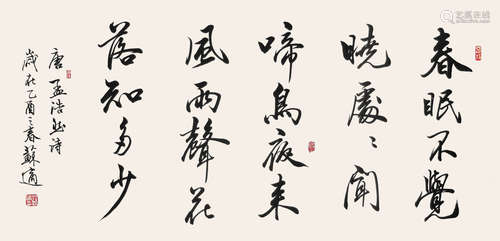 春眠不覺
曉處〻聞
啼鳥夜来
風雨聲花
落知多少
唐孟浩然诗
歲在乙酉之春蘇適